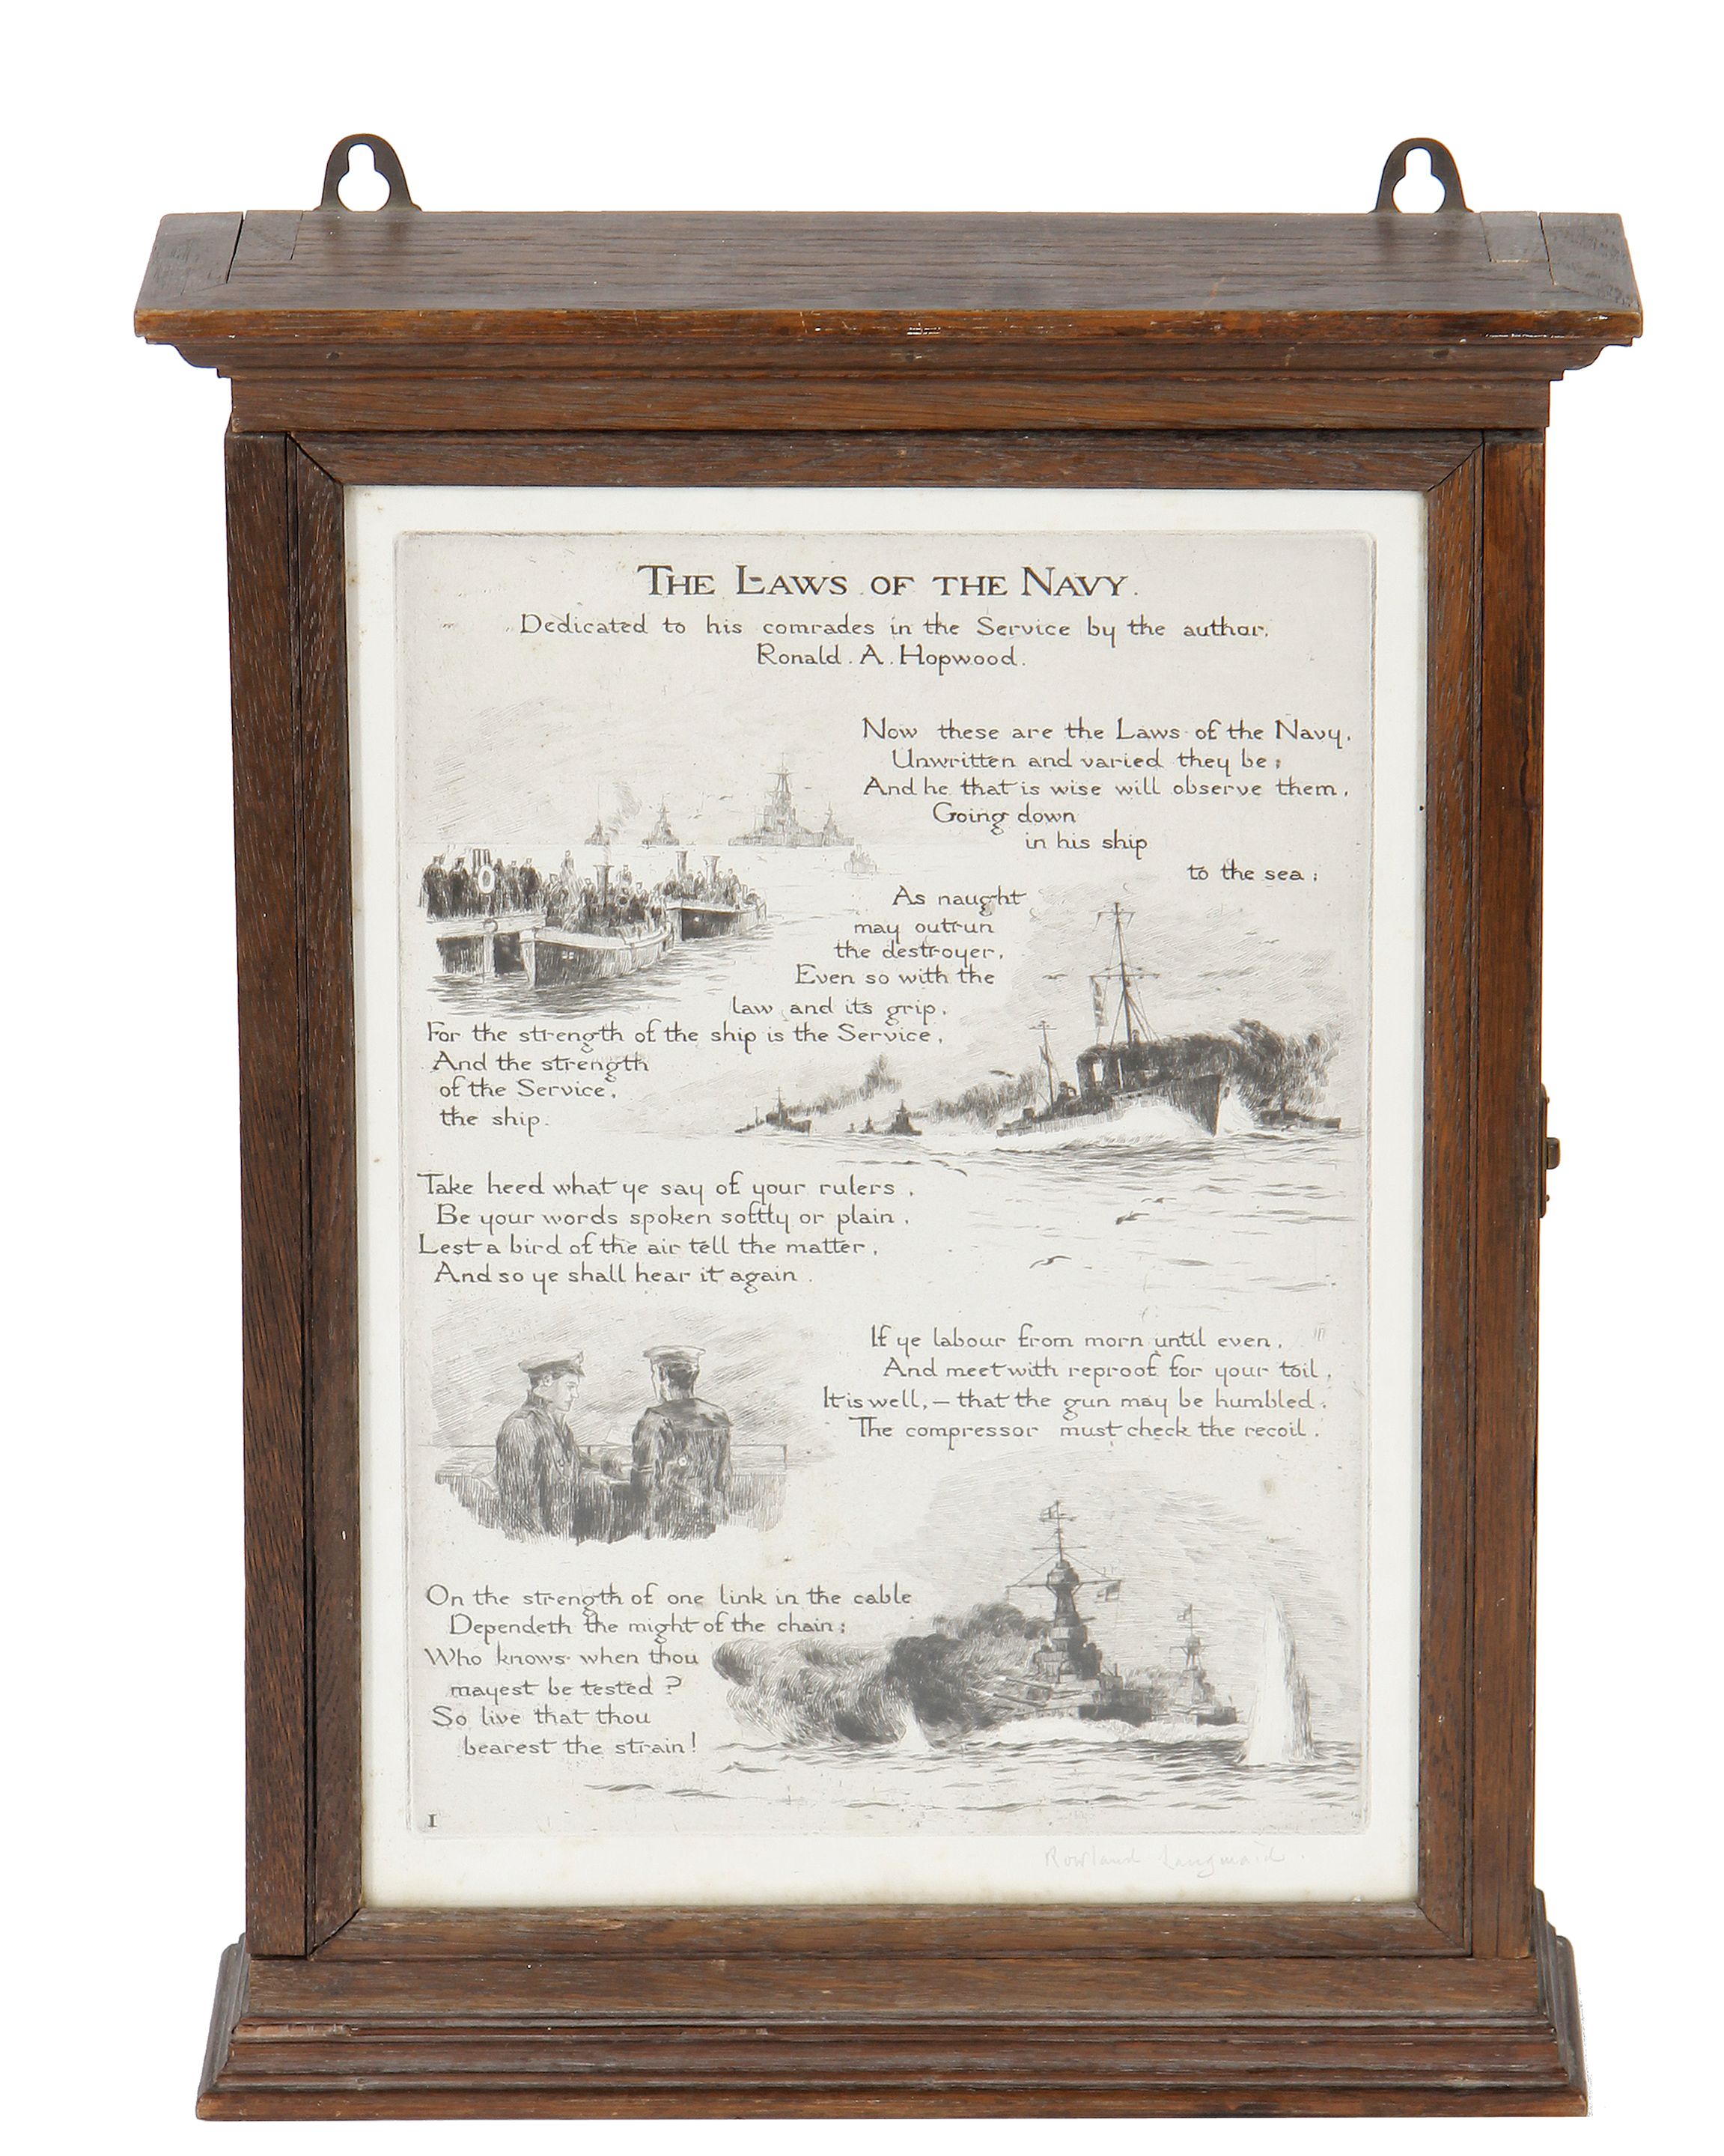 THE LAWS OF THE NAVY.
Dedicated to his comrades in the Service by the author.
Ronald. A. Hopwood.
Now these are the Laws of the Navy,
Unwritten and varied they be;
And he that is wise will observe them,
Going down
in his ship
to the sea;
As naught
may outrun
the destroyer,
Even so with the
law and its grip,
For the strength of the ship is the Service,
And the strength
of the Service,
the ship.
Take heed what ye say of your rulers,
Be your words spoken softly or plain,
Lest a bird of the air tell the matter,
And so ye shall hear it again.
If ye labour from morn until even,
And meet with reproof for your toil,
It is well, — that the gun may be humbled,
The compressor must check the recoil.
On the strength of one link in the cable
Dependeth the might of the chain;
Who knows when thou
mayest be tested?
So live that thou
bearest the strain!
I
Rowland Langmaid.